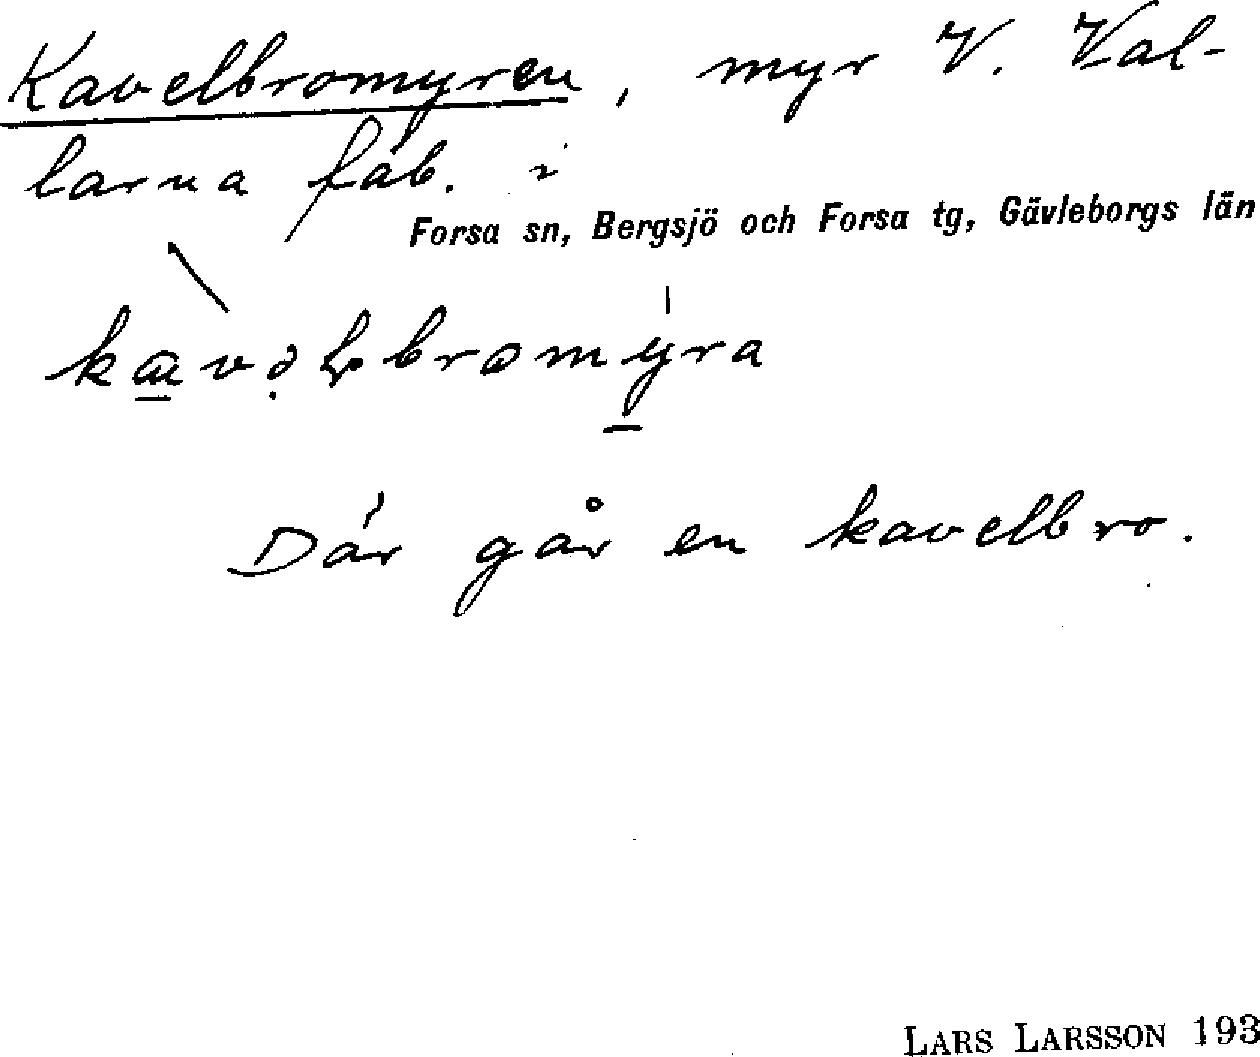 Kavelbromyren, myr V. Val-
larna fäb. i
Forsa sn, Bergsjö och Forsa tg, Gävleborgs län
Där går en kavelbro.
LARS LARSSON 193